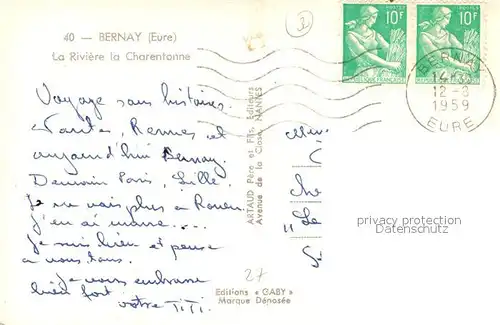 40 — BERNAY (Eure)
La Rivière la Charentonne
Voyage sans histoires.
Nantes, Rennes et
aujourd'hui Bernay.
Demain Paris, Lille.
Je ne vais plus à Rouen
j'en ai marre....
je suis bien et pense
à vous tous.
je vous embrasse
bien fort
votre TiTi.
ARTAUD Père et Fils, Editeurs
Avenue de la Close, NANTES
27
Editions « GABY »
Marque Déposée
POSTES
10F
POSTES
10F
BERNAY
12-8
1959
EURE
privacy protection
Datenschutz